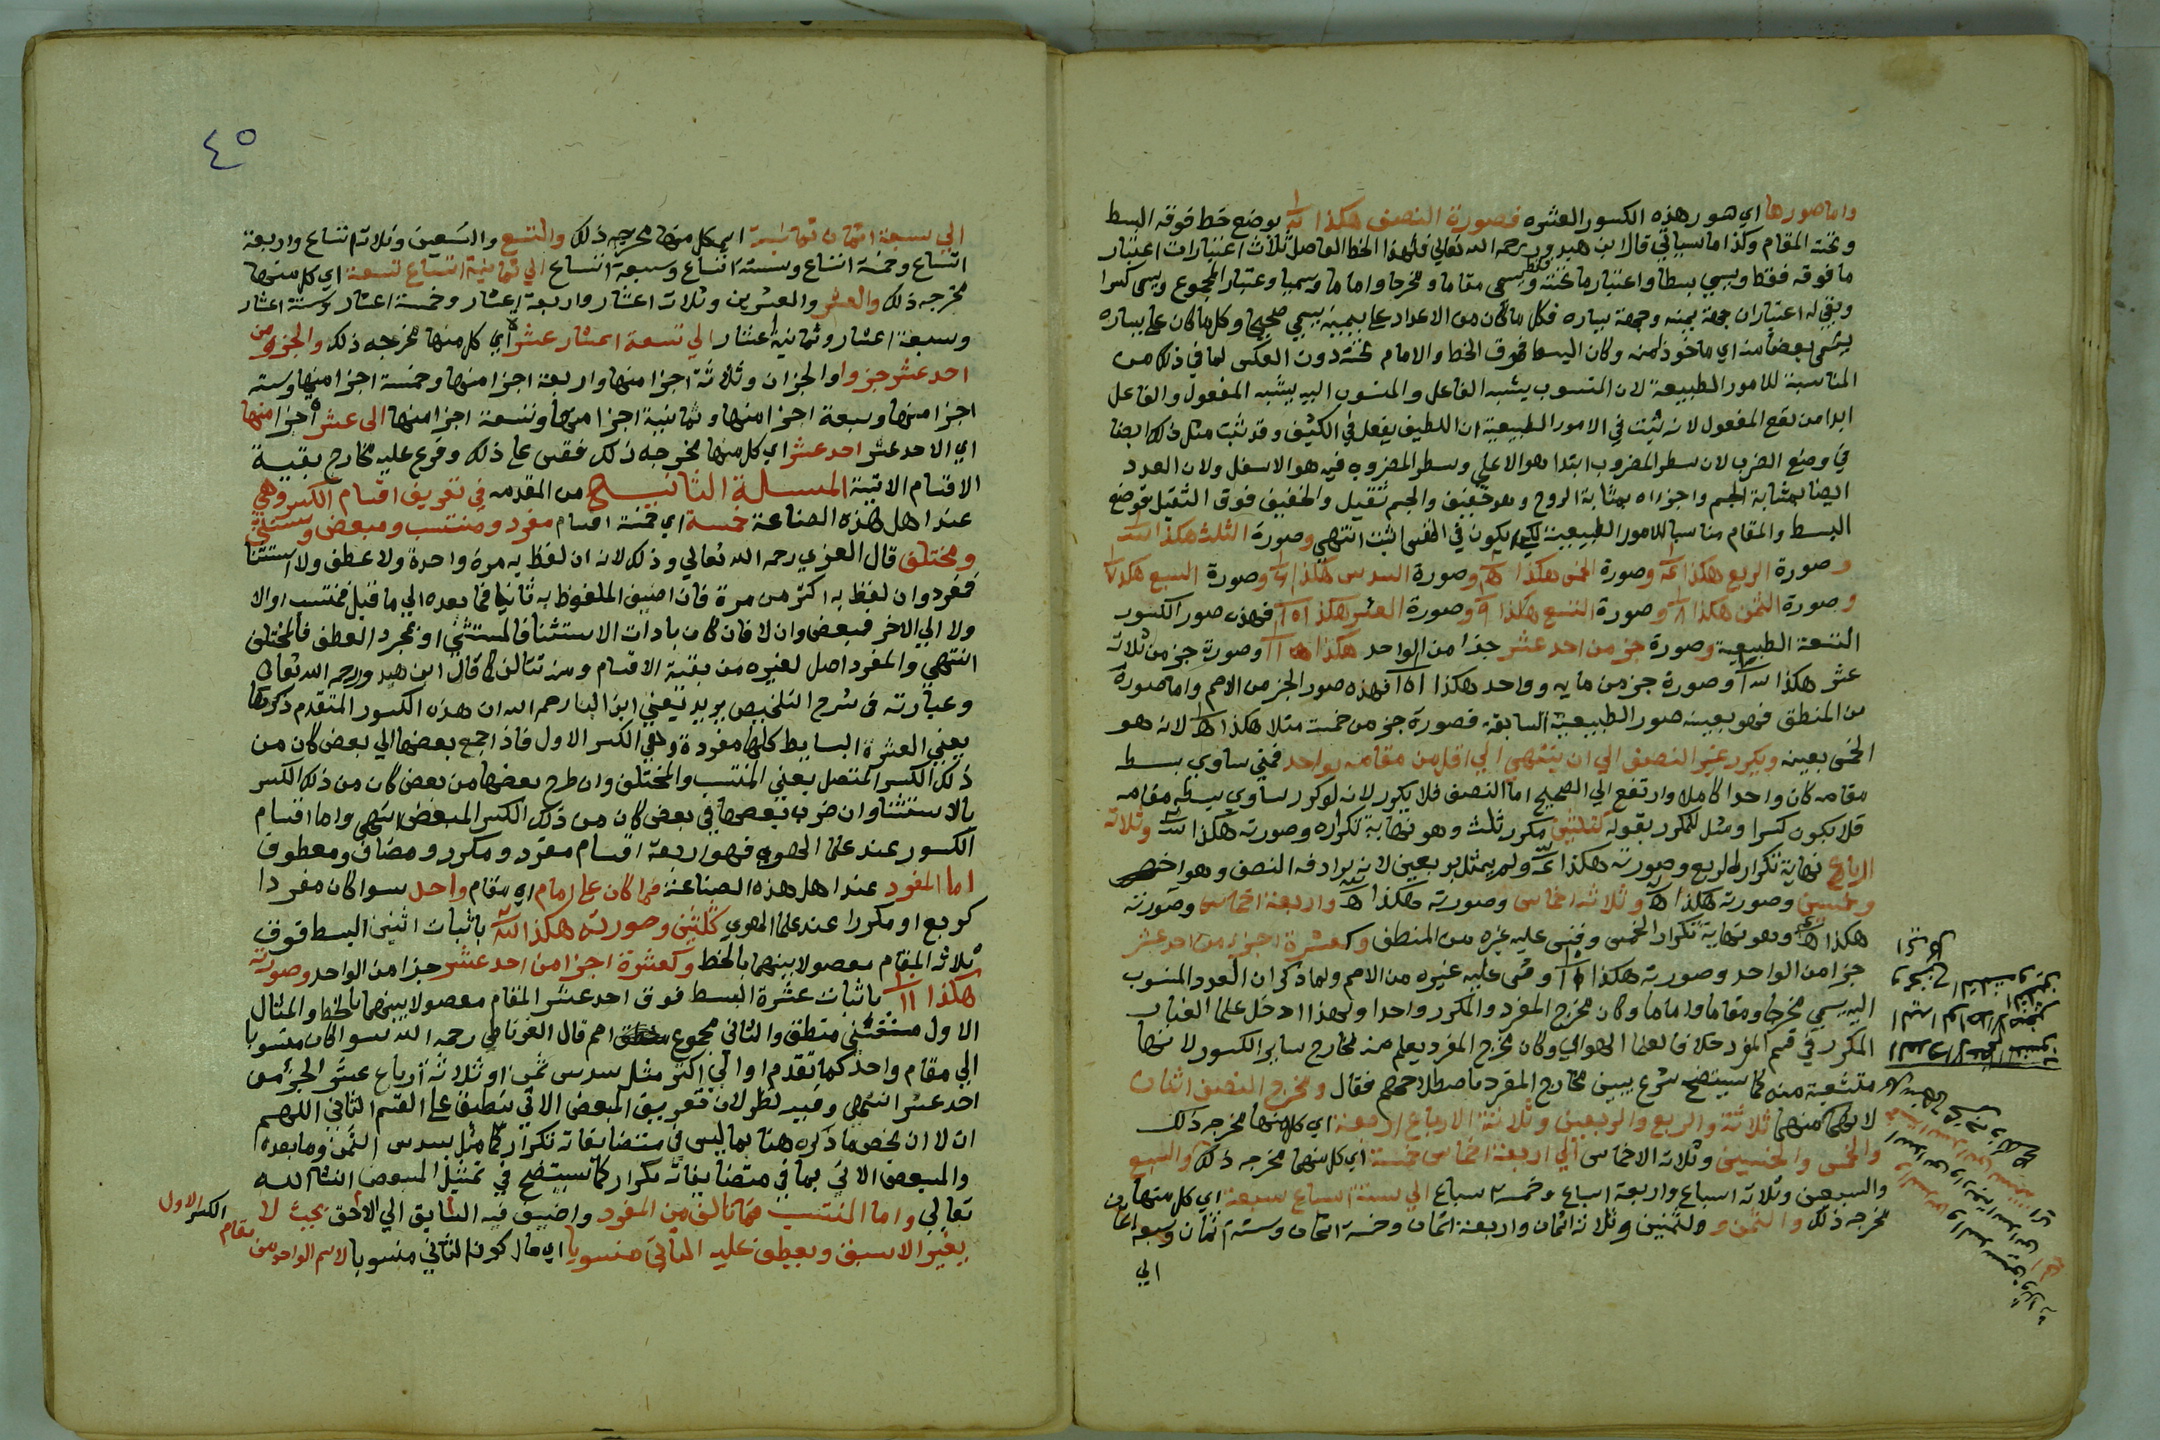 واما صورها اي صور هذه الكسور العشره فصورة النصف هكذا بوضع خط فوقه البسط
وتحته المقام وكذا ما سياتي قال ابن هيدور رحمه الله تعالي فلهذا الخط الفاصل ثلاث اعتبارات اعتبار
ما فوقه فقط ويسمي بسطا واعتبار ما تحته فقط ويسمي مقاما ومخرجا واماما وسميا واعتبار المجموع ويسمي كسرا
وبقي له اعتباران جهة يمينه وجهة يساره فكل ما كان من الاعداد علي يمينه يسمي صحيحا وكل ما كان علي يساره
يسمي بعضا منه اي ماخوذ منه وكان البسط فوق الخط والامام تحته دون العكس لما في ذلك من
المناسبة للامور الطبيعة لان المنسوب يشبه الفاعل والمنسوب اليه يشبه المفعول والفاعل
ابدا من يقع المفعول لانه يثبت في الامور الطبيعية ان اللطيف يفعل في الكثيف وقد ثبت مثل ذلك ايضا
في وضع الضرب لان سطر المضروب ابتدا هو الاعلي وسطر المضروب فيه هو الاسفل ولان العدد
ايضا بمثابة الجسم واجزاه بمثابة الروح وهو خفيف والجسم ثقيل والخفيف فوق الثقيل فوضع
البسط والمقام مناسبا للامور الطبيعية لكي يكون في النفس اثبت انتهي وصورة الثلث هكذا
وصورة الربع هكذا وصورة الخمس هكذا وصورة السدس هكذا وصورة السبع هكذا
وصورة الثمن هكذا وصورة التسع هكذا وصورة العشر هكذا فهذه صور الكسور
التسعة الطبيعية وصورة جزء من احد عشر جزا من الواحد هكذا وصورة جزء من ثلاثة
عشر هكذا وصورة جزء من مايه وواحد هكذا فهذه صور الجزء من الاصم واما صورة
من المنطق فهو بعينه صور الطبيعية السابقه فصورة جزء من خمسة مثلا هكذا لانه هو
الخمس بعينه ويكرر غير النصف الي ان ينتهي الي اقل من مقامه بواحد فمتي ساوي بسطه
مقامه كان واحدا كاملا وارتفع الي الصحيح اما النصف فلا يكرر لانه لو كرر ساوي بسطه مقامه
فلا يكون كسرا ومثل للمكرر بقوله كثلثين مكرر ثلث وهو نهاية تكراره وصورته هكذا وثلاثة
ارباع نهاية تكرار الربع وصورته هكذا ولم يمثل بربعين لانه يرادفه النصف وهو اخصر
وخمسين وصورته هكذا وثلاثة اخماس وصورته هكذا واربعة اخماس وصورته
هكذا وهو نهاية تكرار الخمس وقس عليه غيره من المنطق وكعشرة اجزاء من احد عشر
جزا من الواحد وصورته هكذا وقس عليه غيره من الاصم ولما ذكر ان العدد المنسوب
اليه يسمي مخرجا ومقاما واماما وكان مخرج المفرد والمكرر واحدا ولهذا ادخل علما الغبار
المكرر في قسم المفرد خلافا لعلما الهواي وكان مخرج المفرد يعلم منه مخارج ساير الكسور لانها
متشعبة منه كما سيتضح شرع يبين مخارج المفرد باصطلاحهم فقال ومخرج النصف اثنان
ثلاثة والربع والربعين وثلاثة الارباع اربعة اي كل منها مخرجه ذلك
والخمس والخمسين وثلاثة الاخماس الي اربعة اخماس خمسة اي كل منها مخرجه ذلك والسبع
والسبعين وثلاثة اسباع واربعة اسباع وخمسة اسباع الي ستة اسباع سبعة اي كل منها
مخرجه ذلك والثمن والثمنين وثلاثة اثمان واربعة اثمان وخمسة اثمان وستة اثمان وسبعة اثمان
الي
٤٥
الي سبعة اثمان ثمانية اي كل منها مخرجه ذلك والتسع والتسعين وثلاثة اتساع واربعة
اتساع وخمسة اتساع وستة اتساع وسبعة اتساع الي ثمانية اتساع تسعة اي كل منها
مخرجه ذلك والعشر والعشرين وثلاث اعشار واربعة اعشار وخمسة اعشار وستة اعشار
وسبعة اعشار وثمانية اعشار الي تسعة اعشار عشرة اي كل منها مخرجه ذلك والجزء من
احد عشر جزوا والجزان وثلاثة اجزا منها واربعة اجزا منها وخمسة اجزا منها وسته
اجزا منها وسبعة اجزا منها وثمانية اجزا منها وتسعة اجزا منها الي عشرة اجزا منها
اي الاحد عشر احد عشر اي كل منها مخرجه ذلك فقس علي ذلك وفرع عليه مخارج بقية
الاقسام الاتية المسلة الثانية من المقدمه في تعريف اقسام الكسر وهي
عند اهل هذه الصناعة خمسة اي خمسة اقسام مفرد ومنتسب ومبعض ومستثني
ومختلف قال العزي رحمه الله تعالي وذلك لانه ان لفظ به مرة واحدة ولا عطف ولا استثنا
فمفرد وان لفظ به اكثر من مرة فان اضيف الملفوظ به ثانيا فما بعده الي ما قبل فمنتسب اولا
ولا الي الاخر فمبعض وان لا فان كان باداة الاستثنا فالمستثني او بمجرد العطف فالمختلف
انتهي والمفرد اصل لغيره من بقية الاقسام ومنه تتالف كما قال ابن هيدور رحمه الله تعالي
وعبارته في شرح التلخيص يريد يعني ابن البنا رحمه الله ان هذه الكسور المتقدم ذكرها
يعني العشرة البسايط كلها مفردة وهي الكسر الاول فاذا جمع بعضها الي بعض كان من
ذلك الكسر المتصل يعني المنتسب والمختلف وان طرح بعضها من بعض كان من ذلك الكسر
بالاستثنا وان ضرب بعضها في بعض كان من ذلك الكسر المبعض انتهي واما اقسام
الكسور عند علما الهوي فهو اربعة اقسام مفرد ومكرر ومضاف ومعطوف
اما المفرد عند اهل هذه الصناعة فما كان علي امام اي مقام واحد سوا كان مفردا
كربع او مكررا عند علما الهوي كثلثين وصورته هكذا باثبات اثنين البسط فوق
ثلاثه المقام مفصولا بينهما بالخط وكعشرة اجزا من احد عشر جزا من الواحد وصورته
هكذا باثبات عشرة البسط فوق احد عشر المقام مفصولا بينهما بالخط والمثال
الاول منطق والثاني مجموع اصم قال الغرناطي رحمه الله سوا كان منسوبا
الي مقام واحد كما تقدم او الي اكثر مثل سدس ثمن او ثلاثة ارباع عشر الجزء من
احد عشر انتهي وفيه نظر لان تعريف المبعض الاتي ينطبق علي القسم الثاني اللهم
ان لا ان يخص ما ذكره هنا بما ليس في متضايفاته تكرار كما مثل بسدس الثمن وما بعده
والمبعض الاتي بما في متضايفاته تكرار كما سيتضح في تمثيل المبعض انشا الله
تعالي واما المنتسب فما تالف من المفرد واضيف فيه السابق الي الاحق بحيث لا
يغير الاسبق ويعطف عليه الثاني منسوبا اي حال كون الثاني منسوبا لاسم الواحد من مقام
الكسر الاول